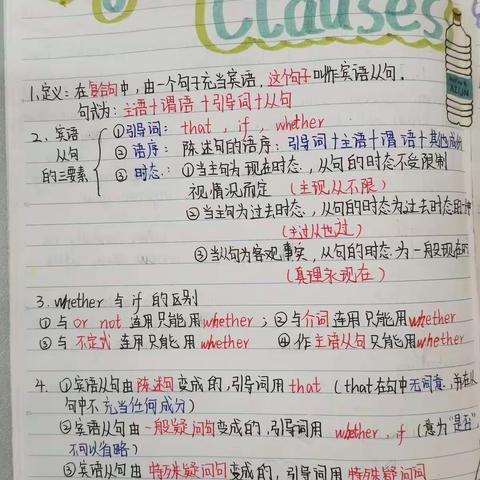 Clauses
1.定义：在复合句中，由一个句子充当宾语，这个句子叫作宾语从句。
句式为：主语+谓语+引导词+从句
2、宾语从句的三要素 ①引导词：that，if，whether
②语序：陈述句的语序：引导词+主语+谓语+其他成份
③时态：①当主句为现在时态，从句的时态不受限制
视情况而定（主现从不限）
②当主句为过去时态，从句的时态为过去时态的一种
（主过从也过）
③当从句为客观事实，从句的时态为一般现在时
（真理永现在）
3.whether 与 if 的区别
①与 or not 连用只能用whether；②与介词连用只能用whether
③与不定式连用只能用whether ④作主语从句只能用whether
4.①宾语从句由陈述句变成的，引导词用 that（that在句中无词意，并在从
句中不充当任何成分）
②宾语从句由一般疑问句变成的，引导词用 whether，if（意为“是否”，
不可以省略）
③宾语从句由特殊疑问句变成的，引导词用特殊疑问词